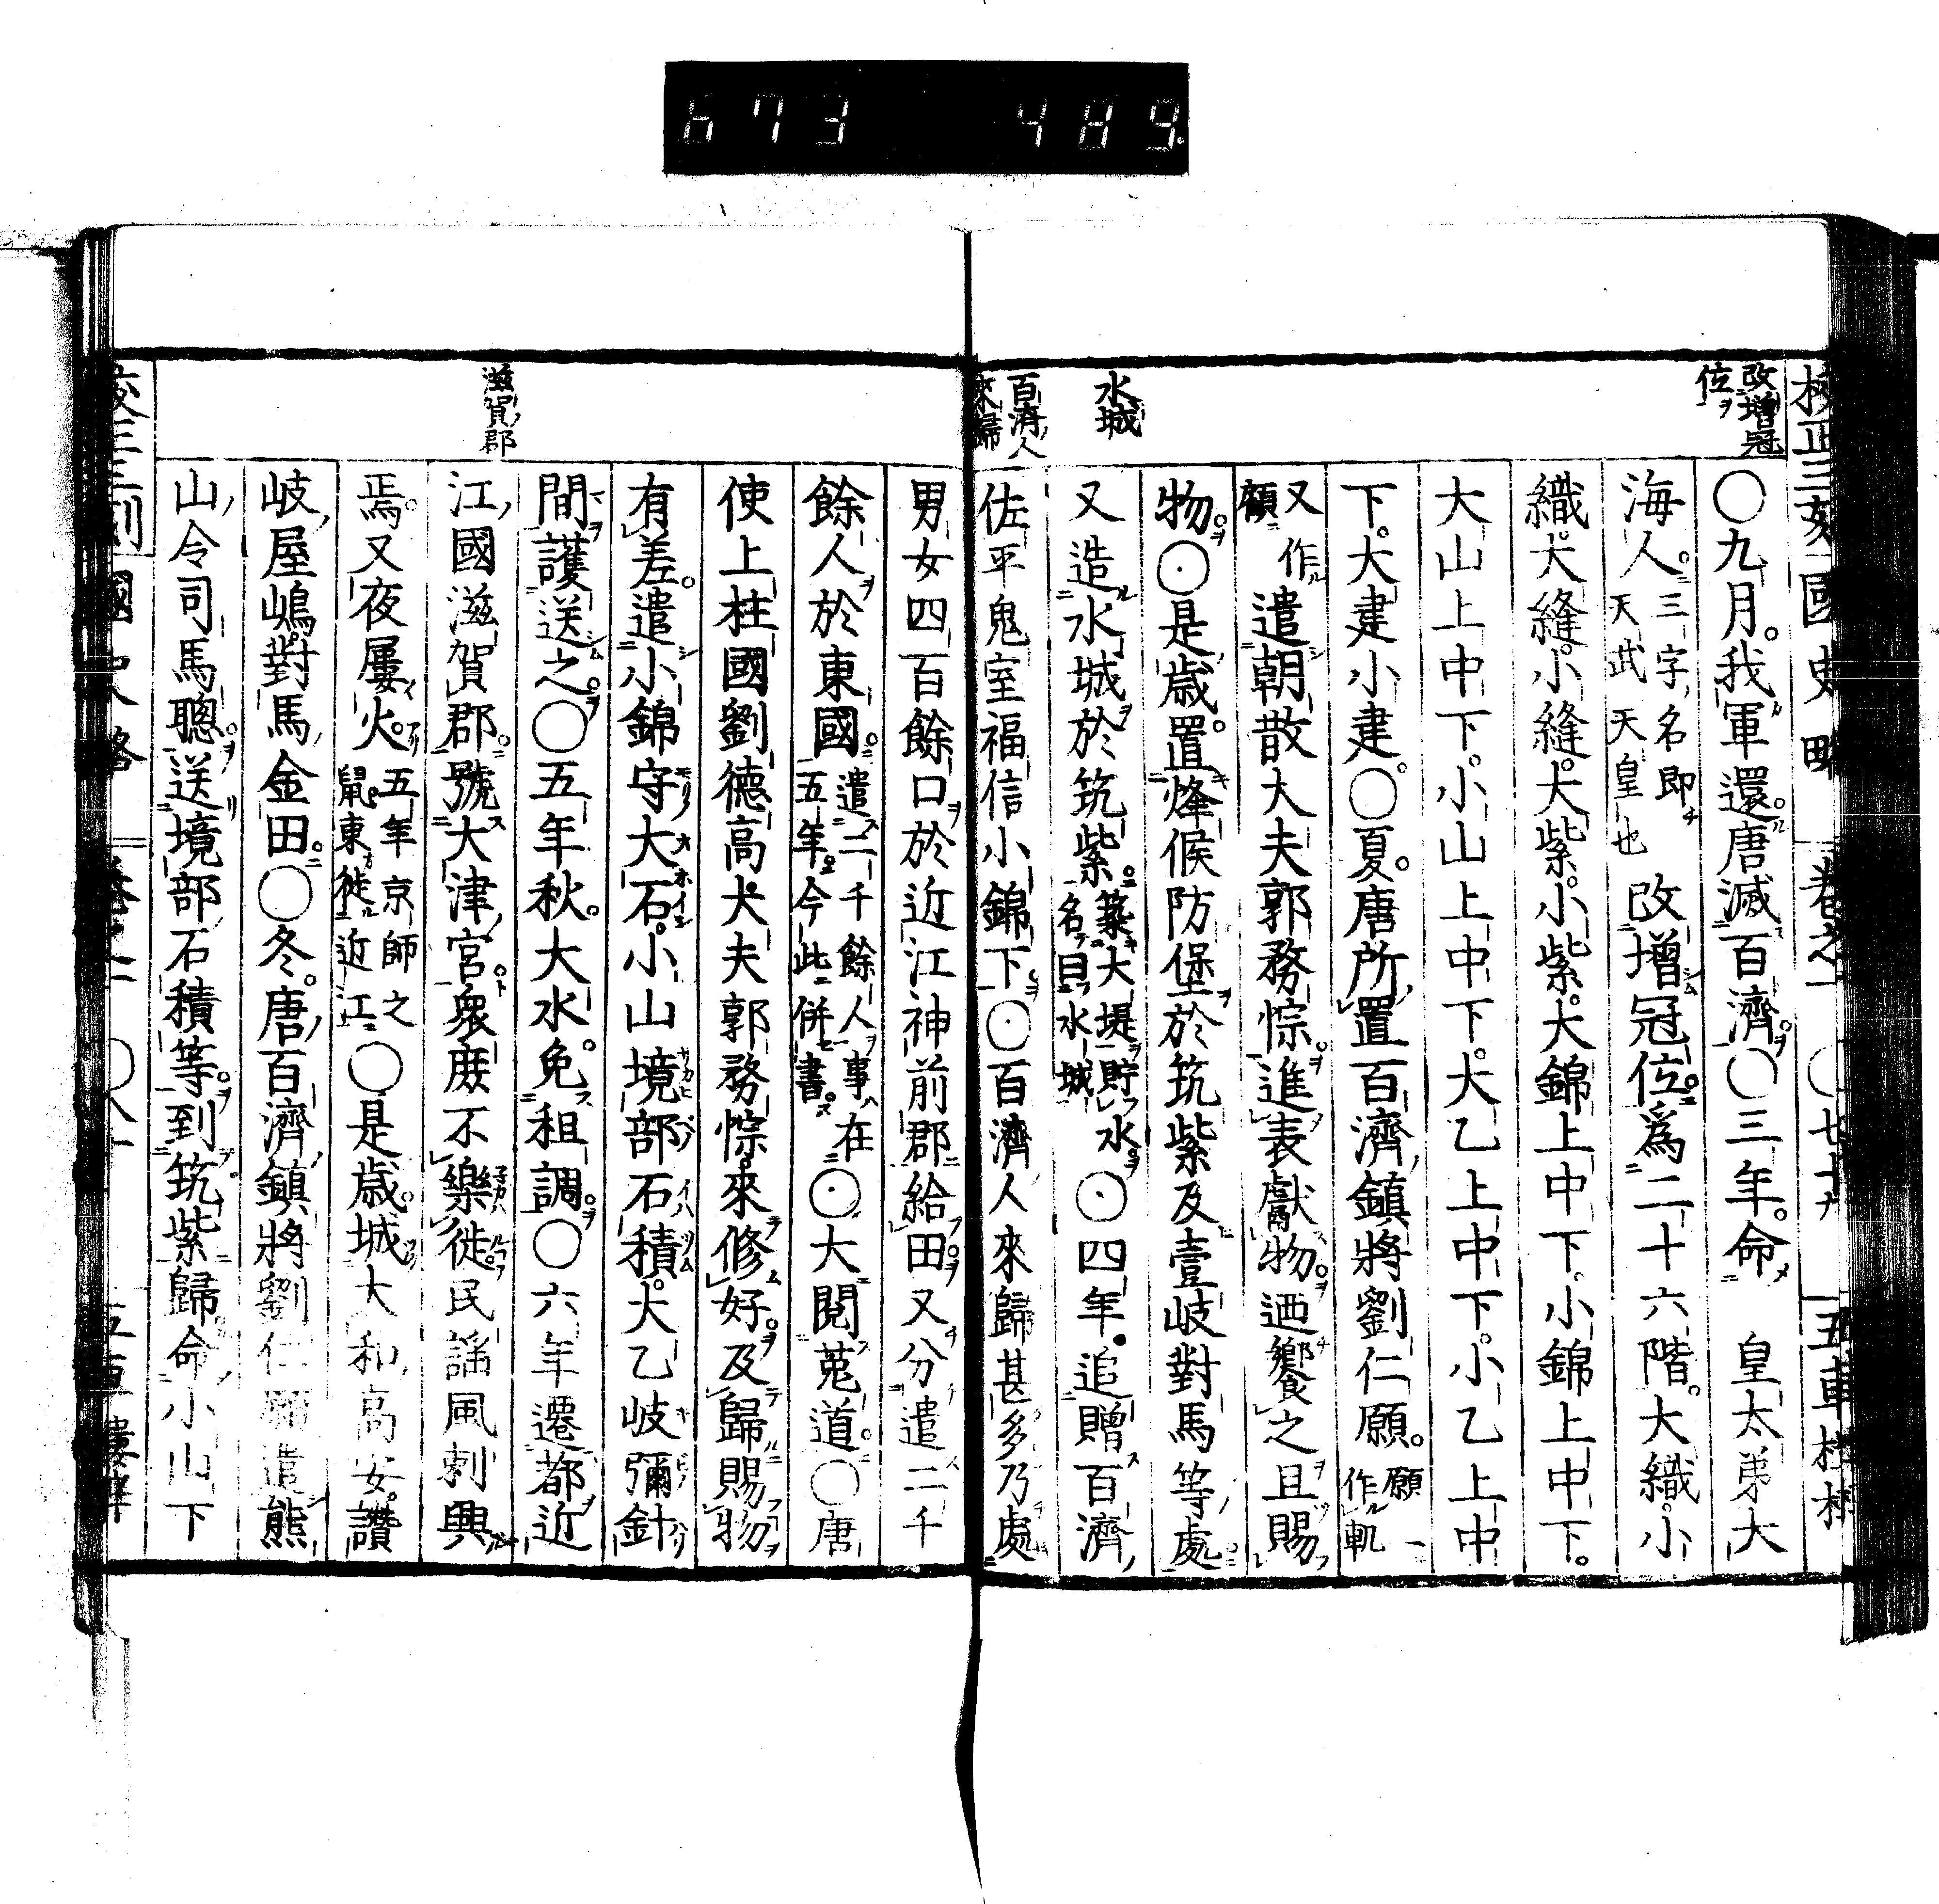 673 489
校正三刻 國史略 卷之一 ○七十九 五車樓梓
改增冠位ヲ
水城
百濟ノ人來歸
○九月。我軍還。唐滅百濟。○三年。命 皇太弟大
海人。三字ノ名即天武天皇也 改增冠位。爲二十六階。大織。小
織。大縫。小縫。大紫。小紫。大錦上中下。小錦上中下。
大山上中下。小山上中下。大乙上中下。小乙上中
下。大建小建。○夏。唐所置百濟鎮將劉仁願。願一作軌
又作顧 遣朝散大夫郭務悰。進表獻物。迺饗之且賜
物。○是歲。置烽候防堡於筑紫及壹岐對馬等處。
又造水城於筑紫。築大堤貯水名曰水城 ○四年。追贈百濟
佐平鬼室福信小錦下。○百濟人來歸甚多乃處
男女四百餘口於近江神前郡給田又分遣二千
餘人於東國。遣二千餘人事在五年今此併書 ○大閱菟道。○唐
使上柱國劉德高大夫郭務悰來修好。及歸賜物
有差。遣小錦守大石。小山境部石積。大乙岐彌針
間護送之。○五年秋。大水。免租調。○六年遷都近
江國滋賀郡。號大津宮。衆庶不樂徙。民謠風刺興
焉。又夜屢火。五年京師之鼠東徙近江 ○是歲。城大和高安。讚
岐屋嶋。對馬金田。○冬。唐百濟鎮將劉仁願遣熊
山令司馬聰。送境部石積等。到筑紫歸命小山下
滋賀ノ郡
校正三刻 國史略 卷之一 ○八十 五車樓梓